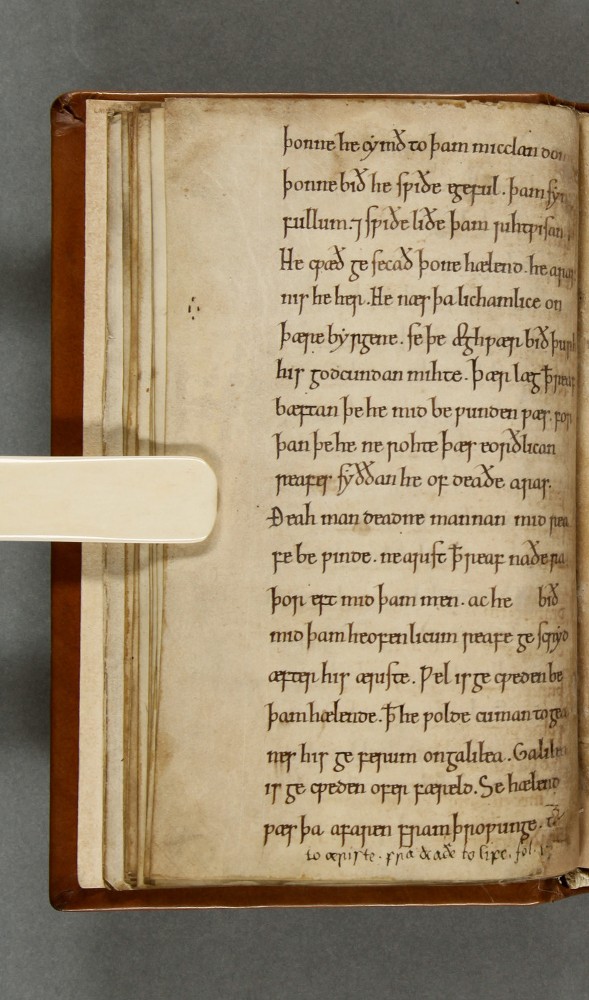 þonne he cymð to þam micclan
þonne bið he sƿiðe egeful. þam
fullum. ⁊ sƿiðe liðe þam rihtƿisan
He cƿæð ge secað þone hælend. he aras
nis he her. He næs þa lichamlice on
þære byrgene. se þe æghƿær bið þurh
his godcundan mihte. Þær læg ꝥ reaf
bæftan þe he mid be ƿunden ƿæs. for
þan þe he ne rohte þæs eorðlican
reafes syððan he of deaðe aras.
Ðeah man deadne mannan mid rea
fe be ƿinde. ne arist ꝥ reaf na ðe ra
þor eft mid þam men. ac he bið
mid þam heofenlicum reafe ge scryd
æfter his æriste. Ƿel is ge cƿeden be
þam hælende. ꝥ he ƿolde cuman togea
nes his ge ferum on galilea. Galilea
is ge cƿeden ofer færeld. Se hælend
ƿæs þa afaren fram þroƿunge.
to æriste. fra deaðe to life.